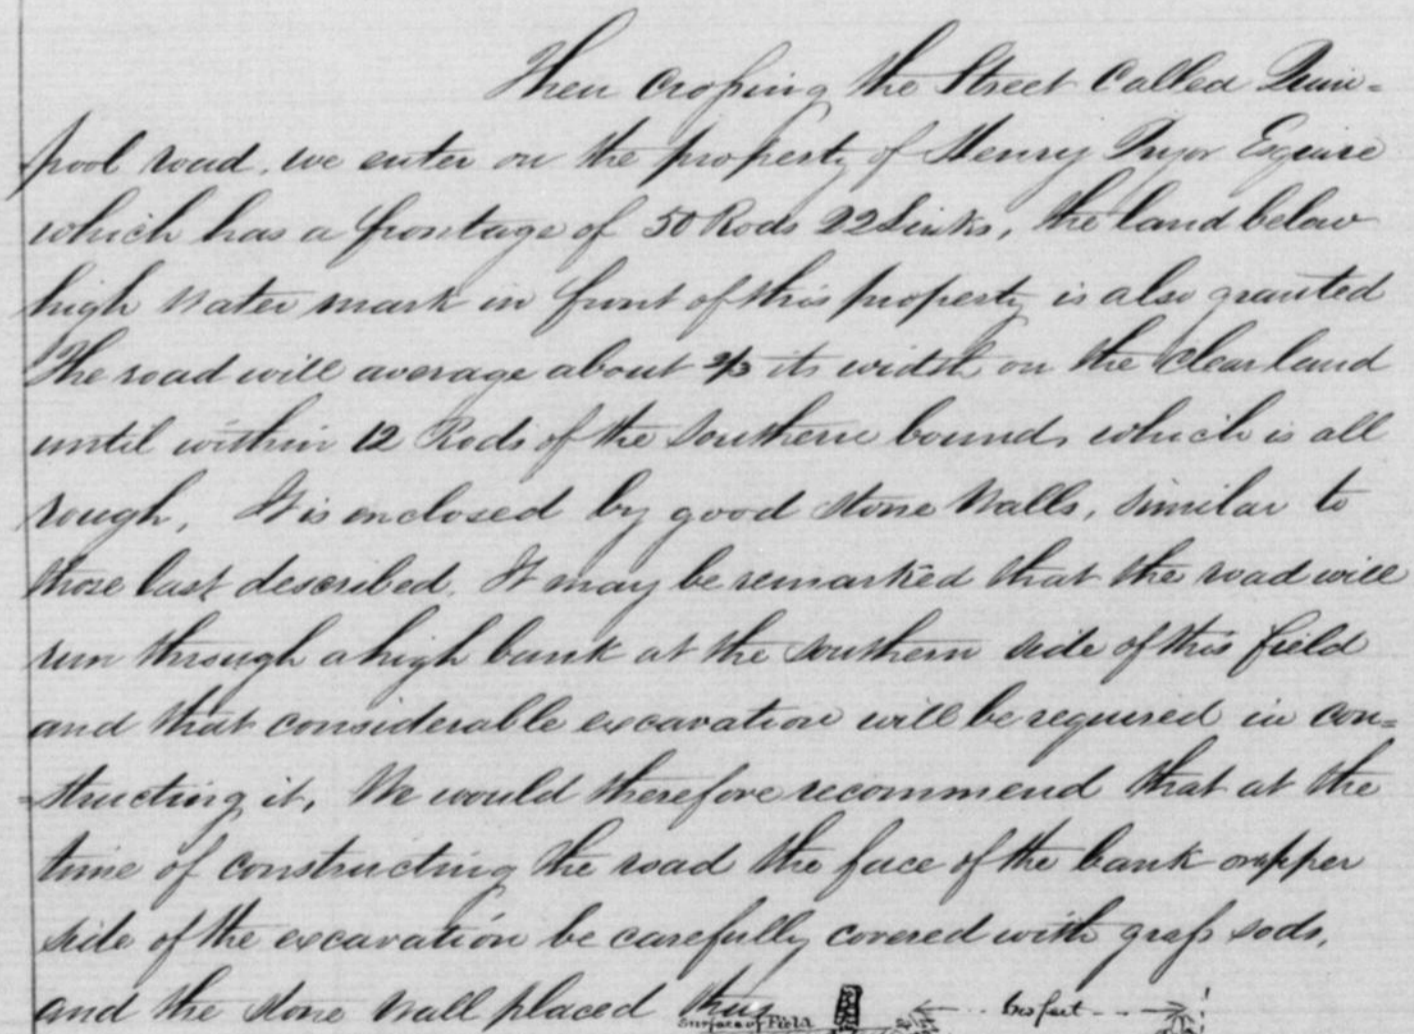 Then crossing the Street Called Quin=
pool road, we enter on the property of Henry Pryor Esquire
which has a frontage of 50 Rods 22 Links, the land below
high water mark in front of this property is also granted
The road will average about 2/3 its width on the clear land
until within 12 Rods of the Southern bound, which is all
rough, It is enclosed by good stone Walls, similar to
those last described. It may be remarked that the road will
run through a high bank at the southern side of this field
and that considerable excavation will be required in con=
=structing it, We would therefore recommend that at the
time of constructing the road the face of the bank or upper
side of the excavation be carefully covered with grass sods,
and the stone wall placed thus
Surface of Field
feet